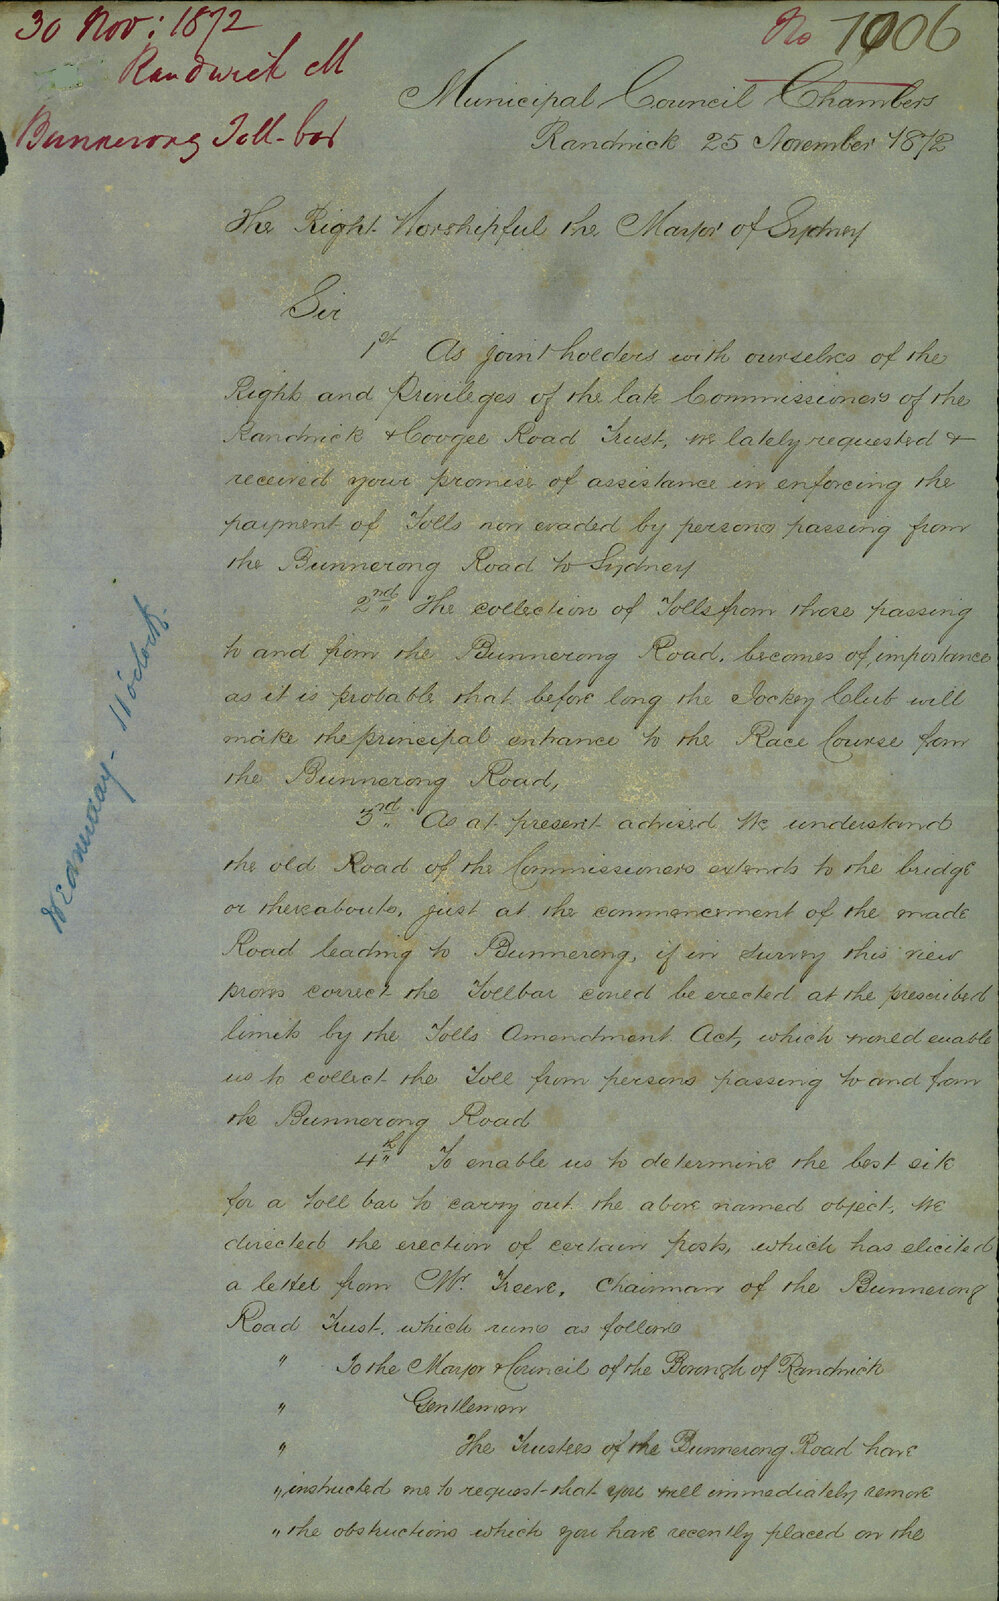 30 Nov: 1872
No 1006
Randwick M
Bunnerong Toll-bar
Municipal Council Chambers
Randwick 25 November 1872
The Right Worshipful the Mayor of Sydney
Sir
1st As joint holders with ourselves of the
Right and Privileges of the late Commissioners of the
Randwick & Coogee Road Trust, we lately requested &
received your promise of assistance in enforcing the
payment of Tolls now evaded by persons passing from
the Bunnerong Road to Sydney
2nd The collection of Tolls from those passing
to and from the Bunnerong Road, becomes of importance
as it is probable that before long the Jockey Club will
make the principal entrance to the Race Course from
the Bunnerong Road,
3rd As at present advised We understand
the old Road of the Commissioners extends to the bridge
or thereabouts, just at the commencement of the made
Road leading to Bunnerong, if in survey this view
proves correct the Tollbar could be erected at the prescribed
limits by the Tolls Amendment Act, which would enable
us to collect the Toll from persons passing to and from
the Bunnerong Road
4th To enable us to determine the best site
for a toll bar to carry out the above named object, We
directed the erection of certain posts, which has elicited
a letter from Mr. Treeve, Chairman of the Bunnerong
Road Trust, which runs as follows
" To the Mayor & Council of the Borough of Randwick
" Gentlemen
" The Trustees of the Bunnerong Road have
" instructed me to request that you will immediately remove
" the obstructions which you have recently placed on the
Wednesday - 11 o'clock.